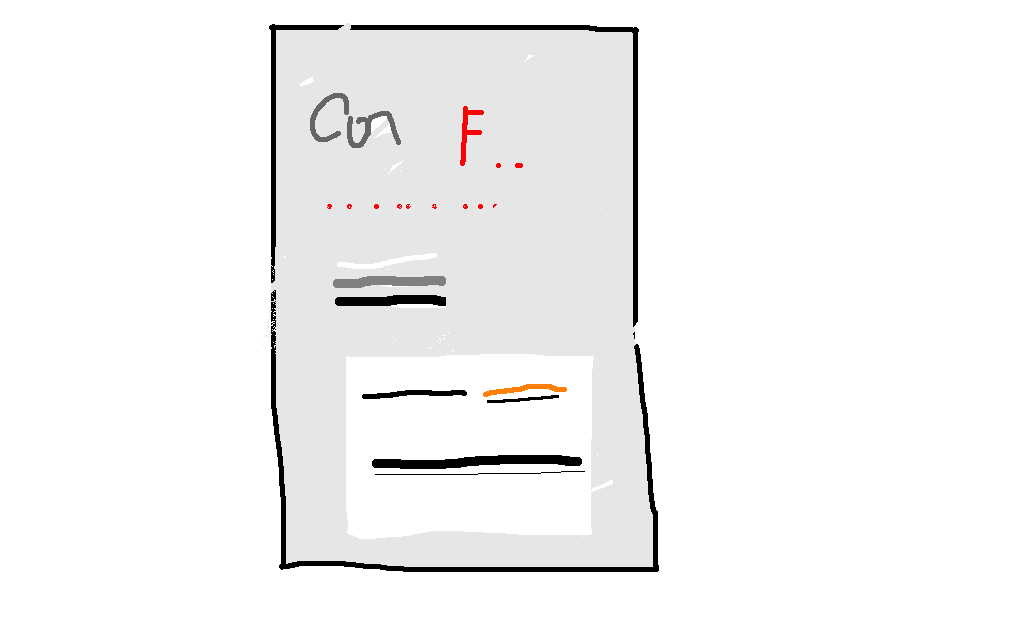 Con F..
.........